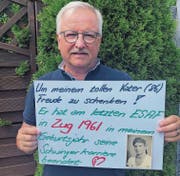 Um meinem tollen Vater (86)
Freude zu schenken !
Er hat am letzten ESAF
in Zug 1961 in meinem
Geburtsjahr seine
Schwingerkarriere
beendet. ♡